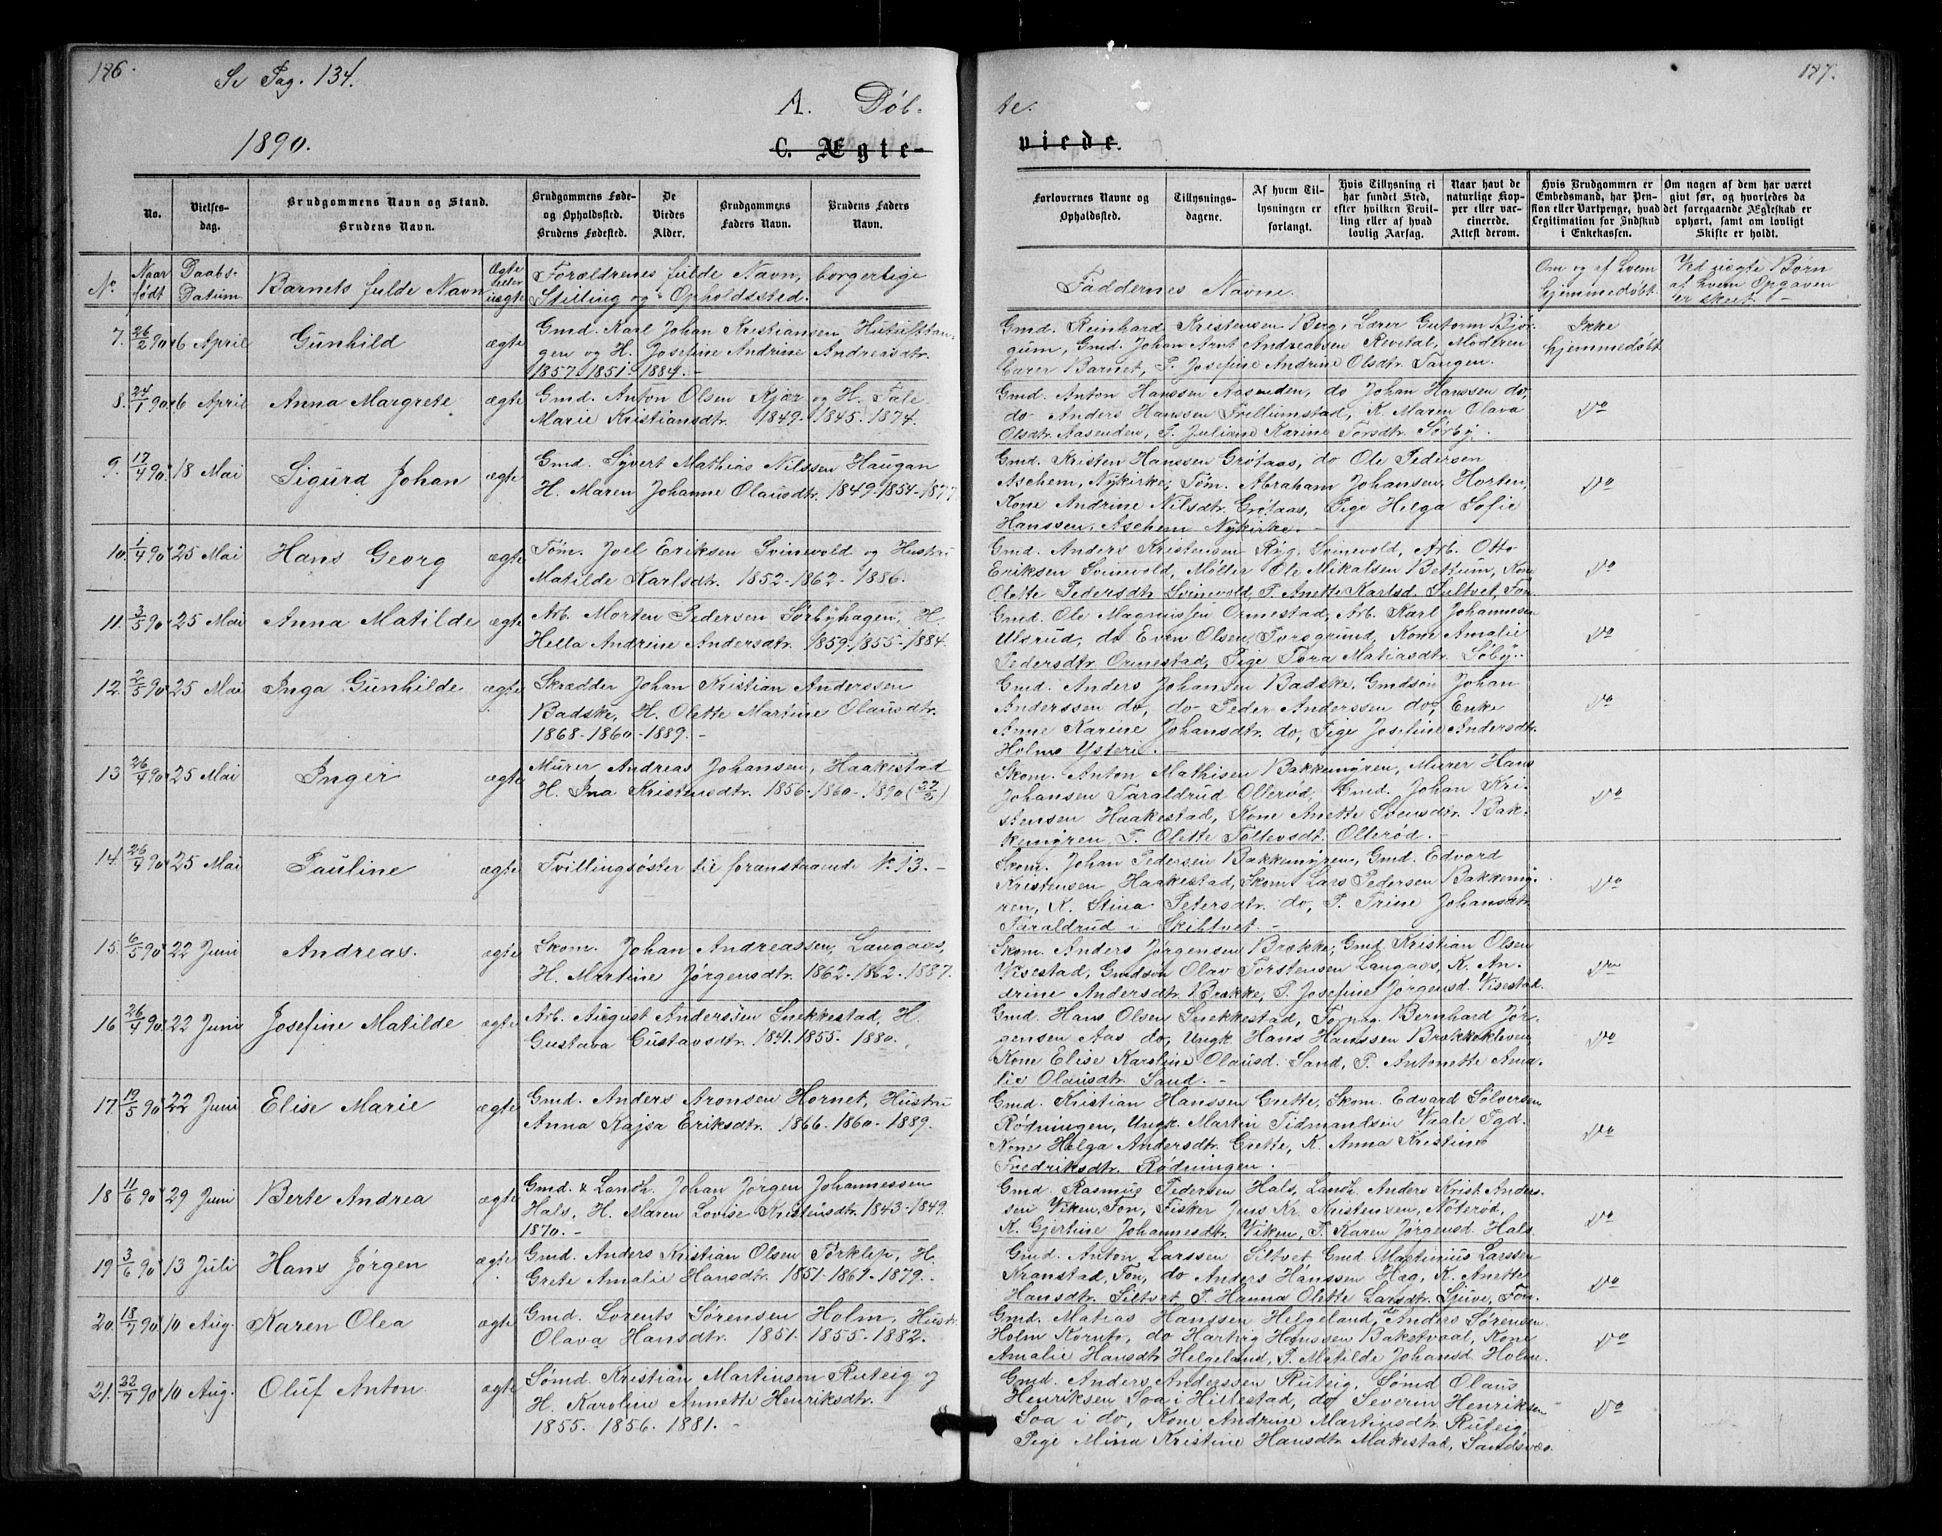 186.
Se Pag. 134.
A. Døb-
1890.
C. Ægte-
No.
Vielses-
dag.
Brudgommens Navn og Stand.
Brudens Navn.
Brudgommens Føde-
og Opholdssted.
Brudens Fødested.
De
Viedes
Alder.
Brudgommens
Faders Navn.
Brudens Faders
Navn.
No
Naar
født
Daabs-
Datum
Barnets fulde Navn
Ægte
eller
uægte
Forældrenes fulde Navn, borgerlige
Stilling og Opholdssted.
7. 26/2 90 6 April Gunhild ægte Gmd. Karl Johan Kristiansen Hutuft
gen og H. Josefine Andrine Andreasdtr.
1857. 1851. 1884. -
8. 24/1 90 6 April Anna Margrete ægte Gmd. Anton Olsen Kjær og H. Tale
Marie Kristiansdtr. 1849-1845-1874.
9. 17/4 90 18 Mai Sigurd Johan ægte Gmd. Syvert Mathias Nilssen Haugan
H. Maren Johanne Olausdtr. 1849-1854-1877
10. 1/4 90 25 Mai Hans Georg ægte Tøm. Joel Eriksen Svinevold og Hustru
Matilde Karlsdtr. 1852-1862-1886.
11. 3/5 90 25 Mai Anna Matilde ægte Arb. Morten Pedersen Sørbyhagen, H.
Hella Andrine Andersdtr. 1859-1855-1884.
12. 2/5 90 25 Mai Inga Gunhilde ægte Skrædder Johan Kristian Anderssen
Badske, H. Olette Martine Olausdtr.
1868-1860-1889. -
13 26/4 90 25 Mai Inger ægte Murer Andreas Johansen, Haakestad
H. Ina Kristensdtr. 1856-1860-1890
14. 26/4 90 25 Mai Pauline ægte Tvillingsøster til foranstaaende No. 13. -
15. 6/5 90 22 Juni Andreas. ægte Skom. Johan Andreassen, Langaas,
H. Martine Jørgensdtr. 1862-1862-1887.
16 26/4 90 22 Juni Josefine Matilde ægte Arb. August Anderssen Snekkestad, H.
Gustava Gustavsdtr. 1841. 1855. 1880.
17. 19/5 90 22 Juni Elise Marie ægte Gmd. Anders Aronsen Hornet, Hustru
Anna Kajsa Eriksdtr. 1866-1860-1889.
18 11/6 90 29 Juni Berte Andrea ægte Gmd. & Landh. Johan Jørgen Johannessen
Hals, H. Maren Lovise Kristensdtr. 1843-1849.
1870. -
19 3/6 90 13 Juli Hans Jørgen ægte Gmd. Anders Kristian Olsen Torklep, H.
Grete Amalie Hansdtr. 1851-1861-1879.
20. 18/7 90 10 Aug. Karen Olea ægte Gmd. Lorents Sørensen Holm, Hustr
Olava Hansdtr. 1851. 1855-1882.
21. 22/7 90 10 Aug. Oluf Anton ægte Sømd. Kristian Martinsen Ruteig og
H. Karoline Annette Henriksdtr.
1855. 1856. 1881. -
187.
te.
viede.
Forlovernes Navne og
Opholdssted.
Tillysnings-
dagene.
Af hvem Til-
lysningen er
forlangt.
Hvis Tillysning ei
har fundet Sted,
efter hvilken Bevil-
ling eller af hvad
lovlig Aarsag.
Naar havt de
naturlige Kop-
per eller vac-
cinerede.
Attest derom.
Hvis Brudgommen er
Embedsmand, har Pen-
sion eller Vartpenge, hvad
Legitimation for Indskud
i Enkekassen.
Om nogen af dem har været
givt før, og hvorledes da
det foregaaende Ægteskab er
ophørt, samt om lovligt
Skifte er holdt.
Faddernes Navne.
Om og af hvem
hjemmedøbt.
Ved uægte Børn
af hvem Opgaven
er skeet. -
Gmd. Reinhard Kristensen Berg, Lærer Gutorm Bjør-
gum, Gmd. Johan Arnt Andreassen Revetal, Modtren
bærer Barnet, P. Josefine Andrine Olsdtr. Tangen.
Ikke
hjemmedøbt
Gmd. Anton Hanssen Aasenden, do Johan Hanssen do,
do Anders Hanssen Trillumstad, K. Maren Olava
Olsdtr. Aasenden, P. Juliane Karine Torsdtr. Sørby.
do
Gmd. Kristen Hanssen Grøtaas, do Ole Pedersen
Aschem, Nykirke; Tøm. Abraham Johansen, Horten,
Kone Andrine Nilsdtr. Grøtaas, Pige Helga Sofie
Hanssen, Aschem Nykirke. -
do
Gmd. Anders Kristensen Ryg, Svinevold, Arb. Otto
Eriksen Svinevold, Møller Ole Mikalsen Bettum, Kone
Olette Pedersdtr. Svinevold, P. Anette Karlsd. Sultvet, Fon
do
Gmd. Ole Magnussen Ormestad, Arb. Karl Johannesen
Ulsrud, do Even Olsen, Forsgrund, Kone Amalie
Pedersdtr. Ormestad, Pige Tora Matiasdtr. Søby.
do
Gmd. Anders Johansen Badske. Gmdsøn Johan
Anderssen do, do Peder Anderssen do, Enke
Anne Karine Johansdtr. do, Pige Josefine Andersdtr.
Holme Ysteri. -
do
Skom. Anton Mathisen Bakkemyren, Murer Hans
Johansen Taraldrud Ollerød, Gmd. Johan Kri-
stensen Haakestad, Kone Anette Svensdtr. Bak-
kemyren, P. Olette Tollevsdt. Ollerød. -
do
Skom. Johan Pedersen Bakkemyren, Gmd. Edvard
Kristensen Haakestad, Skom. Lars Pedersen Bakkemy-
ren, K. Stina Petersdtr. do, P. Trine Johansdtr.
Taraldrud i Skiftvet. -
do
Skom. Anders Jørgensen Brække; Gmd. Kristian Olsen
Visestad, Gmdsøn Olav Torstensen Langaas, K. An-
drine Andersdtr. Brække, P. Josefine Jørgensd. Visestad.
do
Gmd. Hans Olsen Snekkestad, Forpag. Bernhard Jør-
gensen Aas do, Ungk. Hans Hanssen Brækkekleven
Kone Elise Karoline Olausd. Sand, P. Antonette Ama-
lie Olausdtr. Sand. -
do
Gmd. Kristian Hanssen Grette, Skom. Edvard Sølversen
Rødningen, Ungk. Martin Tidmandsen Vaale Pgd.
Kone Helga Andersdtr. Grette, K. Anna Kristine
Fredriksdtr. Rødningen. -
do
Gmd. Rasmus Pedersen Hals, Landh. Anders Krist. Anders-
sen Viken, Fon, Fisker Jens Kr. Kristensen, Nøterød,
K. Gjertine Johannesdtr. Viken, P. Karen Jørgensd. Hals
do
Gmd. Anton Larssen Siltvet Gmd. Martinius Larssen
Kranstad, Fon, do Anders Hanssen Hæg, K. Anette
Hansdtr. Siltvet P. Hanna Olette Larsdtr. Sjuve, Fon.
do
Gmd. Matias Hanssen Helgeland, do Anders Sørensen
Holm Kornto, do Hartvig Hanssen Bakstvaal, Kone
Amalie Hansdtr. Helgeland, P. Matilde Johansd. Holm.
do
Gmd. Anders Anderssen Ruteig, Sømd Olaus
Henriksen Soa i Hillestad, do Severin Henriksen
Soa i do, Kone Andrine Martinsdtr. Ruteig,
Pige Mina Kristine Hansdtr. Makestad, Sandsvær.
do